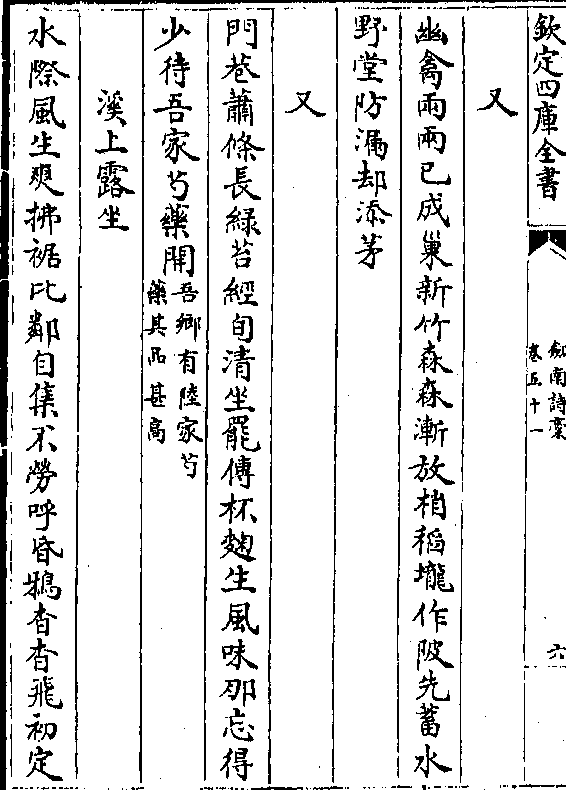 欽定四庫全書
劍南詩藁
卷五十一
六
又
幽禽兩兩已成巢新竹森森漸放梢稻壠作陂先蓄水
野堂防漏却添茅
又
門巷蕭條長綠苔經旬清坐罷傳杯麴生風味那忘得
少待吾家芍藥開吾鄉有陸家芍
藥其品甚高
溪上露坐
水際風生爽拂裾比鄰自集不勞呼昏鵶杳杳飛初定